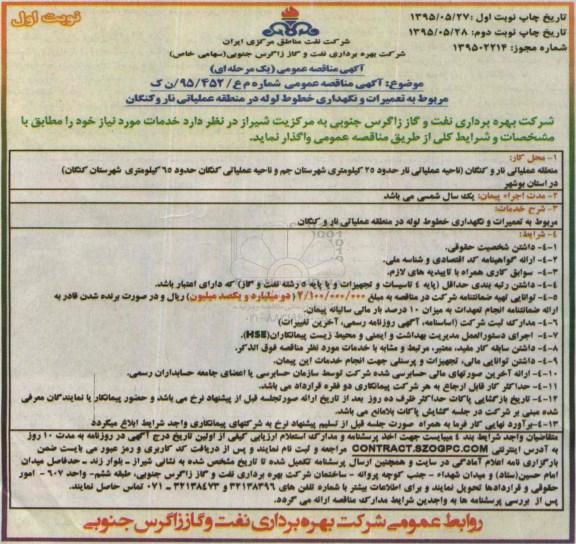 تاریخ چاپ نوبت اول : ۱۳۹۵/۰۵/۲۷
تاریخ چاپ نوبت دوم: ۱۳۹۵/۰۵/۲۸
شماره مجوز: ۱۳۹۵۰۲۲۱۴
نوبت اول
شرکت نفت مناطق مرکزی ایران
شرکت بهره برداری نفت و گاز زاگرس جنوبی(سهامی خاص)
آگهی مناقصه عمومی (یک مرحله ای)
موضوع: آگهی مناقصه عمومی شماره م ع / ۹۵/۴۵۲/ن ک
مربوط به تعمیرات و نگهداری خطوط لوله در منطقه عملیاتی نار و کنگان
شرکت بهره برداری نفت و گاز زاگرس جنوبی به مرکزیت شیراز در نظر دارد خدمات مورد نیاز خود را مطابق با
مشخصات و شرایط کلی از طریق مناقصه عمومی واگذار نماید.
۱- محل کار:
منطقه عملیاتی نار و کنگان (ناحیه عملیاتی نار حدود ۲۵ کیلومتری شهرستان جم و ناحیه عملیاتی کنگان حدود ۶۵ کیلومتری شهرستان کنگان)
در استان بوشهر
۲- مدت اجراء پیمان: یک سال شمسی می باشد
۳- شرح خدمات:
مربوط به تعمیرات و نگهداری خطوط لوله در منطقه عملیاتی نار و کنگان
۴- شرایط:
۴-۱- داشتن شخصیت حقوقی.
۴-۲- ارائه گواهینامه کد اقتصادی و شناسه ملی.
۴-۳- سوابق کاری همراه با تاییدیه های لازم.
۴-۴- داشتن رتبه بندی حداقل (پایه ۴ تاسیسات و تجهیزات و یا پایه ۵ رشته نفت و گاز) که دارای اعتبار باشد.
۴-۵- توانایی تهیه ضمانتنامه شرکت در مناقصه به مبلغ ۲/۱۰۰/۰۰۰/۰۰۰ (دو میلیارد و یکصد میلیون) ریال و در صورت برنده شدن قادر به
ارائه ضمانتنامه انجام تعهدات به میزان ۱۰ درصد بار مالی سالیانه پیمان.
۴-۶- مدارک ثبت شرکت (اساسنامه، آگهی روزنامه رسمی، آخرین تغییرات)
۴-۷- اجرای دستورالعمل مدیریت بهداشت و ایمنی و محیط زیست پیمانکاران(HSE).
۴-۸- داشتن سابقه کار مفید، معتبر، مرتبط و مشابه با خدمات مورد نظر مناقصه فوق الذکر.
۴-۹- داشتن توانایی مالی، تجهیزات و پرسنلی جهت انجام خدمات این پیمان.
۴-۱۰- ارائه آخرین صورتهای مالی حسابرسی شده شرکت توسط سازمان حسابرسی یا اعضای جامعه حسابداران رسمی.
۴-۱۱- حداکثر کار قابل ارجاع به هر شرکت پیمانکاری دو فقره قرارداد می باشد.
۴-۱۲- تاریخ بازگشایی پاکات حداکثر ظرف ده روز بعد از تاریخ ارائه صورتجلسه قبل از پیشنهاد نرخ می باشد و حضور پیمانکار یا نمایندگان معرفی
شده مبنی بر شرکت در جلسه گشایش پاکات بلامانع می باشد.
۴-۱۳- برآورد نهایی کار فرما به همراه صورت جلسه قبل از تسلیم پیشنهاد نرخ به شرکتهای پیمانکاری واجد شرایط ابلاغ میگردد
متقاضیان واجد شرایط بند ۴ میبایست جهت اخذ پرسشنامه و مدارک استعلام ارزیابی کیفی از اولین تاریخ درج آگهی در روزنامه به مدت ۱۰ روز
به آدرس اینترنتی CONTRACT.SZOGPC.COM مراجعه و ثبت نام نمایند و پس از دریافت کد کاربری و رمز عبور می بایست ضمن
بارگزاری نامه اعلام آمادگی در سایت و همچنین ارسال پرسشنامه تکمیل شده تا تاریخ مشخص شده به نشانی شیراز - بلوار زند - حدفاصل میدان
امام حسین(ستاد) و میدان شهداء - جنب کوچه پروانه - ساختمان شرکت بهره برداری نفت و گاز زاگرس جنوبی، طبقه ششم- واحد ۶۰۷ - امور
حقوقی و قراردادها تحویل نمایند و برای اطلاعات بیشتر با شماره تلفن های ۳۲۱۳۸۳۹۶ و ۳۲۱۳۸۴۷۳ - ۰۷۱ تماس حاصل نمایند.
پس از بررسی پرسشنامه ها به واجدین شرایط مدارک مناقصه ارائه می گردد.
روابط عمومی شرکت بهره برداری نفت و گاز زاگرس جنوبی